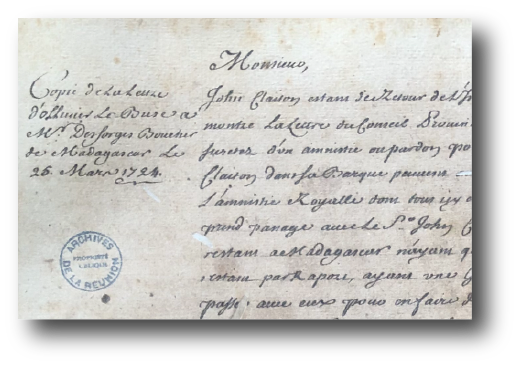 Monsieur,
Copie de La Lettre
d'ollivier Le Buse a
Mr. Desforges Boucher
de Madagascar Le
25 Mars 1724.
John Claison estant de Retour de L'
montré La Lettre du Conseil Provin
suretez d'un amnistie ou pardon po
Claison dans sa Barque
L'amnistie Royalle dont tous
grand partage avec Le Sr. John
restant a Madagascar n'ayant
estant ayant une
passé avec eux pour en faire
ARCHIVES
PROPRIÉTÉ
PUBLIQUE
DE LA RÉUNION